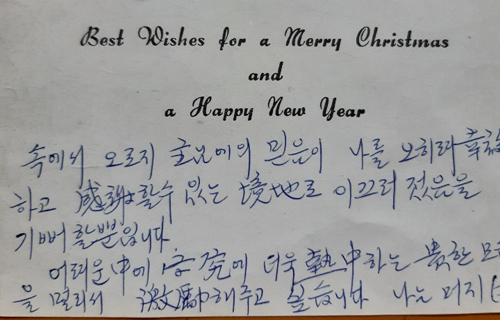 Best Wishes for a Merry Christmas
and
a Happy New Year
속에서 오로지 굳은 믿음이 나를 오히려 幸福
하고 感謝할수 있는 境地로 이끄러 졌음을
기뻐 할뿐입니다
어려운 中에 우 더욱 熱中하는 貴한 모
을 멀리서 激勵해주고 싶습니다 나는 머지